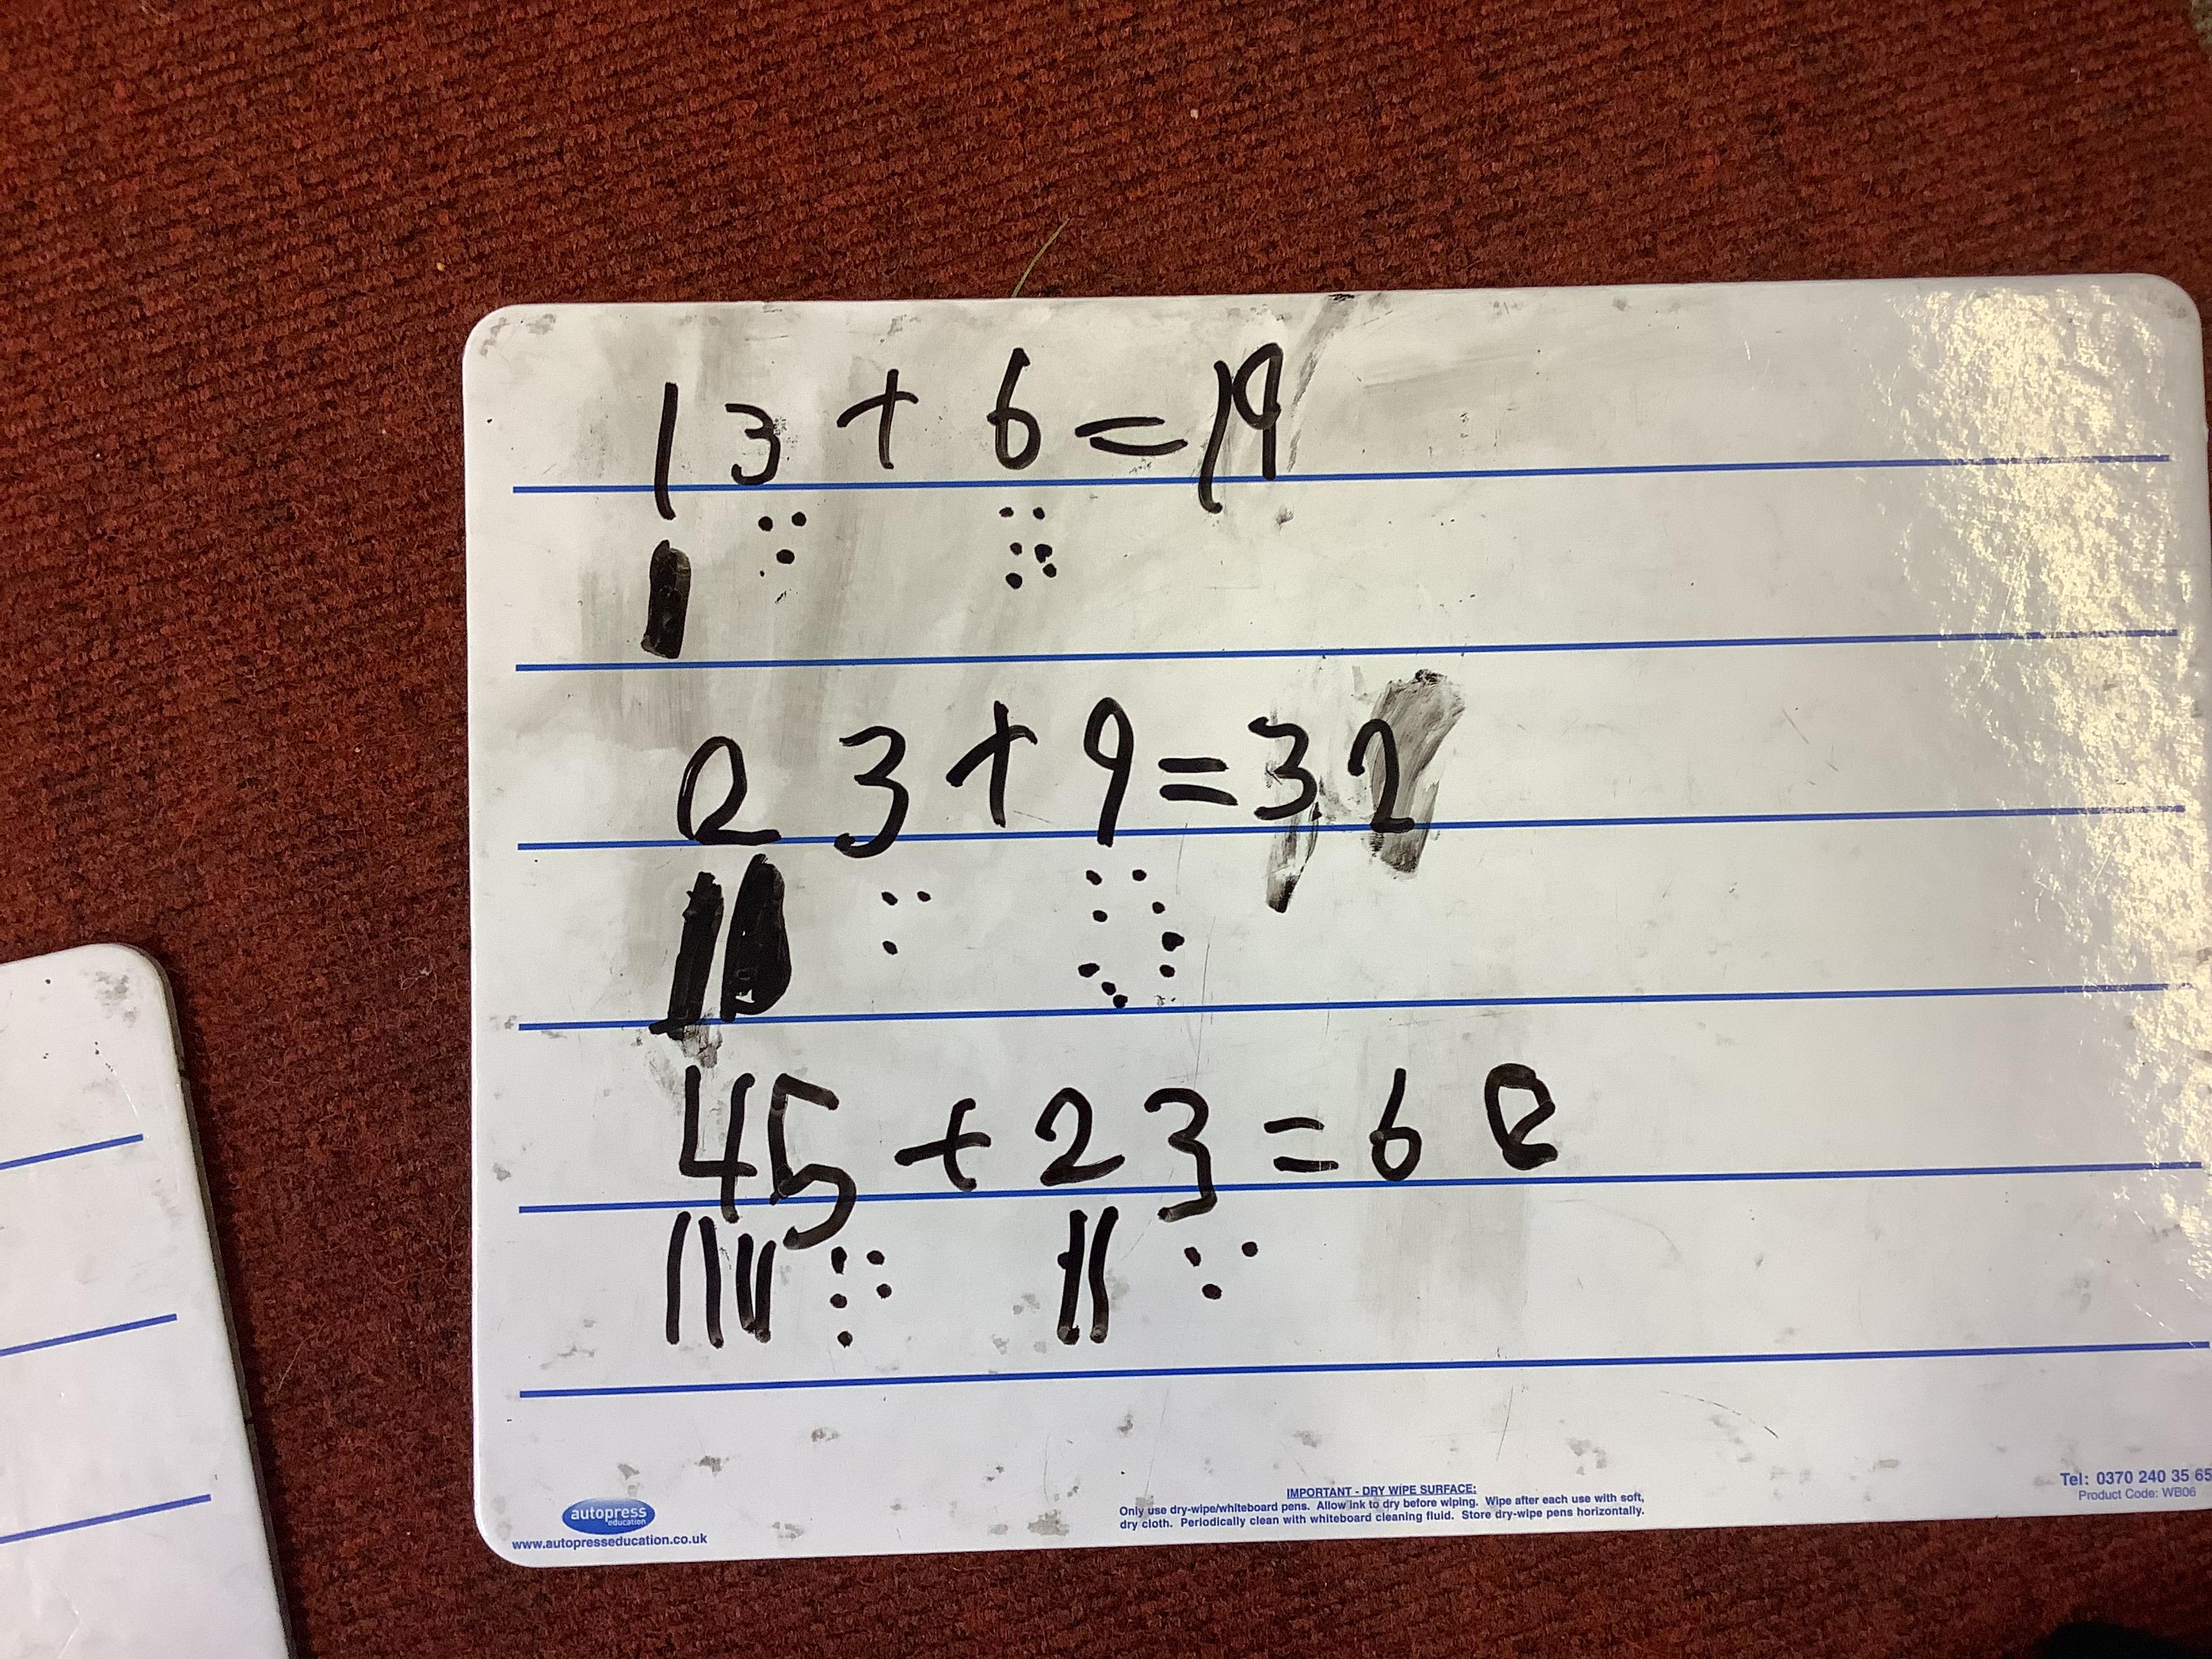 13 + 6 = 19
23 + 9 = 32
45 + 23 = 68
autopress
education
www.autopresseducation.co.uk
IMPORTANT - DRY WIPE SURFACE:
Only use dry-wipe/whiteboard pens. Allow ink to dry before wiping. Wipe after each use with soft,
dry cloth. Periodically clean with whiteboard cleaning fluid. Store dry-wipe pens horizontally.
Tel: 0370 240 35 65
Product Code: WB06